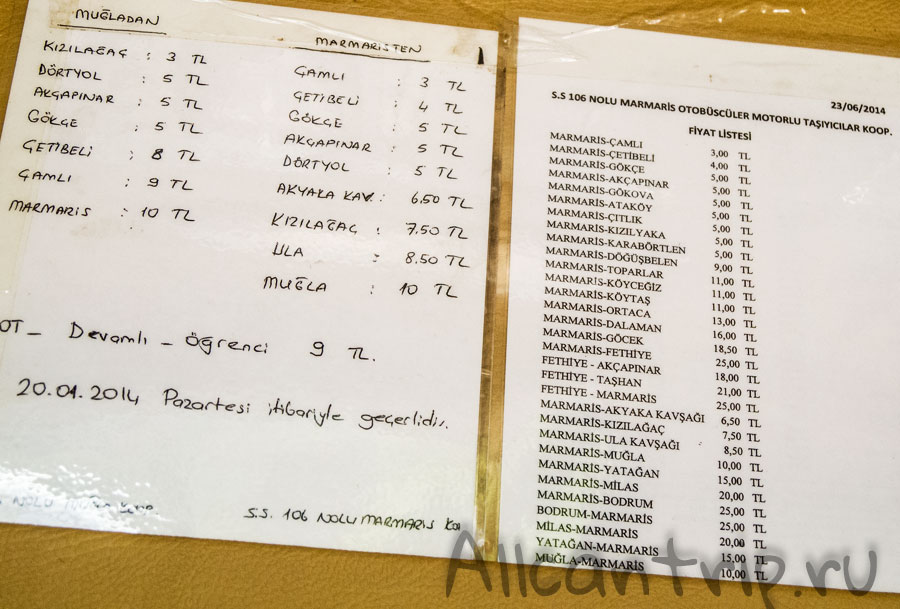 MUĞLADAN
KIZILAĞAÇ : 3 TL
DÖRTYOL : 5 TL
AKÇAPINAR : 5 TL
GÖKÇE : 5 TL
ÇETİBELİ : 8 TL
ÇAMLI : 9 TL
MARMARİS : 10 TL
MARMARİSTEN
ÇAMLI : 3 TL
ÇETİBELİ : 4 TL
GÖKÇE : 5 TL
AKÇAPINAR : 5 TL
DÖRTYOL : 5 TL
AKYAKA KAV. : 6.50 TL
KIZILAĞAÇ : 7.50 TL
ULA : 8.50 TL
MUĞLA : 10 TL
OT - Devamlı - Öğrenci 9 TL.
20.01.2014 Pazartesi itibariyle geçerlidir.
S.S. 106 NOLU MARMARİS
23/06/2014
S.S 106 NOLU MARMARİS OTOBÜSCÜLER MOTORLU TAŞIYICILAR KOOP.
FİYAT LİSTESİ
MARMARİS-ÇAMLI 3,00 TL
MARMARİS-ÇETİBELİ 4,00 TL
MARMARİS-GÖKÇE 5,00 TL
MARMARİS-AKÇAPINAR 5,00 TL
MARMARİS-GÖKOVA 5,00 TL
MARMARİS-ATAKÖY 5,00 TL
MARMARİS-ÇITLIK 5,00 TL
MARMARİS-KIZILYAKA 5,00 TL
MARMARİS-KARABÖRTLEN 5,00 TL
MARMARİS-DÖĞÜŞBELEN 9,00 TL
MARMARİS-TOPARLAR 11,00 TL
MARMARİS-KÖYCEĞİZ 11,00 TL
MARMARİS-KÖYTAŞ 11,00 TL
MARMARİS-ORTACA 13,00 TL
MARMARİS-DALAMAN 16,00 TL
MARMARİS-GÖCEK 18,50 TL
MARMARİS-FETHİYE 25,00 TL
FETHİYE - AKÇAPINAR 18,00 TL
FETHİYE - TAŞHAN 21,00 TL
FETHİYE - MARMARİS 25,00 TL
MARMARİS-AKYAKA KAVŞAĞI 6,50 TL
MARMARİS-KIZILAĞAÇ 7,50 TL
MARMARİS-ULA KAVŞAĞI 8,50 TL
MARMARİS-MUĞLA 10,00 TL
MARMARİS-YATAĞAN 15,00 TL
MARMARİS-MİLAS 20,00 TL
MARMARİS-BODRUM 25,00 TL
BODRUM-MARMARİS 25,00 TL
MİLAS-MARMARİS 20,00 TL
YATAĞAN-MARMARİS 15,00 TL
MUĞLA-MARMARİS 10,00 TL
Allcantrip.ru